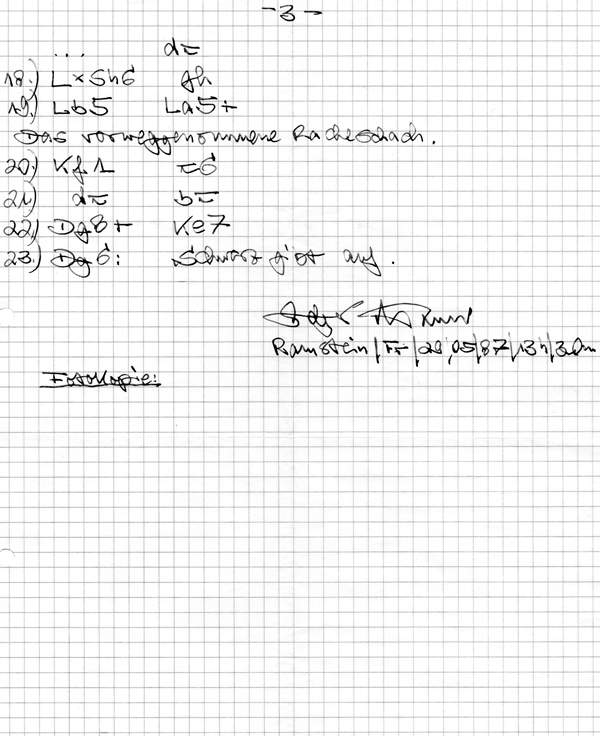 -3-
... d=
18.) L×Sh6 gh
19.) Lb5 La5+
Das vorweggenommene Racheschach.
20.) Kf1 =6
21.) d= b=
22.) Dg8+ Ke7
23.) Dg6: Schwarz gibt auf.
Ramstein/FF/28,05/87/13h/30m
Fotokopie: